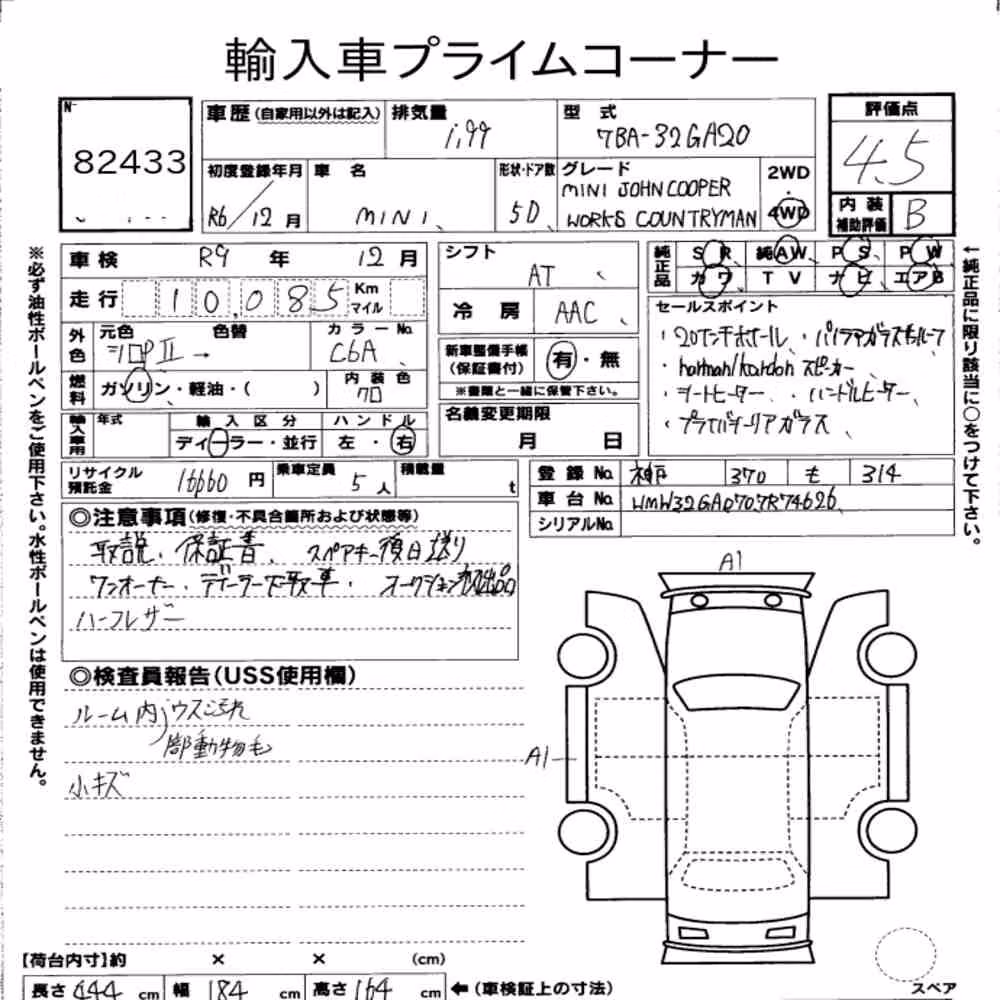 輸入車プライムコーナー
N-
82433
車歴(自家用以外は記入)
排気量
1,99
型 式
7BA-32GA20
評価点
4.5
初度登録年月
R6/12月
車 名
MINI
形状・ドア数
5D
グレード
MINI JOHN COOPER
WORKS COUNTRYMAN
2WD
・
4WD
内 装
補助評価
B
※必ず油性ボールペンをご使用下さい。水性ボールペンは使用できません。
車検 R9 年 12 月
走行 10,085 Km
マイル
外色
元色 色替
シロPⅡ →
カラーNo.
C6A
燃料
ガソリン・軽油・( )
内装色
クロ
輸入車用
年式
輸入区分
ディーラー・並行
ハンドル
左・右
シフト
AT
冷 房
AAC
新車整備手帳
(保証書付)
有・無
※書類と一緒に保管下さい。
名義変更期限
月 日
純正品
SR 純AW PS PW
カワ TV ナビ エアB
セールスポイント
・20インチホイール、・パノラマガラスルーフ
・harman/kardon スピーカー、
・シートヒーター、・ハンドルヒーター、
・プライバシーリアガラス、
←純正品に限り該当に○をつけて下さい。
リサイクル
預託金
16660 円
乗車定員
5 人
積載量
t
登録No. 神戸 370 も 314
車台No. WMW32GA0707R74626
シリアルNo.
◎注意事項(修復・不具合箇所および状態等)
取説、保証書、スペアキー後日送り
ワンオーナー・ディーラー下取車・オークション初出品
ハーフレザー
◎検査員報告(USS使用欄)
ルーム内 ウスヨゴレ
部動物毛
小キズ
A1
A1
【荷台内寸】約 × × (cm)
長さ 444 cm 幅 184 cm 高さ 164 cm ←(車検証上の寸法)
スペア